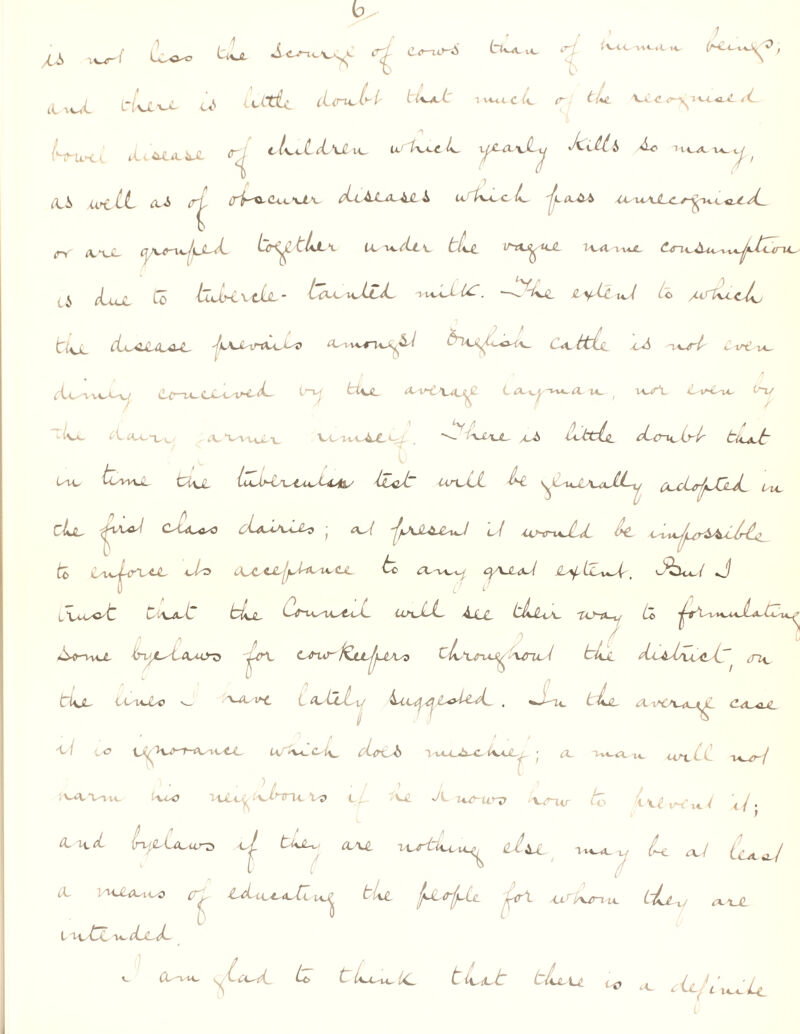 6
is not less the scourge of cows than of human beings;
and there is little doubt that much of the recognised
bowel disease of children which yearly kills so many,
as well as of obscurer diseases which pass unrecognised
or are grouped together under the vague name consumption
is due to tubercle-tainted milk. The extent to which
the disease prevails amongst English cattle is not even
dimly conceived by the average layman, nor even by
the dairy farmer himself. There is little doubt that
in time the tuberculin test will be generally adopted in
the first class dairies; at present it would be impossible
to enforce its acceptance to any great extent. But I
trust that the Council will see their way to formulating
some byelaws for cowkeepers throughout the district, on
the lines I have lately suggested. In the average case
it is ignorance which does mischief; a man will not
harm his neighbours if he knows how to prevent it;
and byelaws if they are nothing else, may be at least
a means of educating the people for whom they are
intended.
I am glad to think that there is a definite